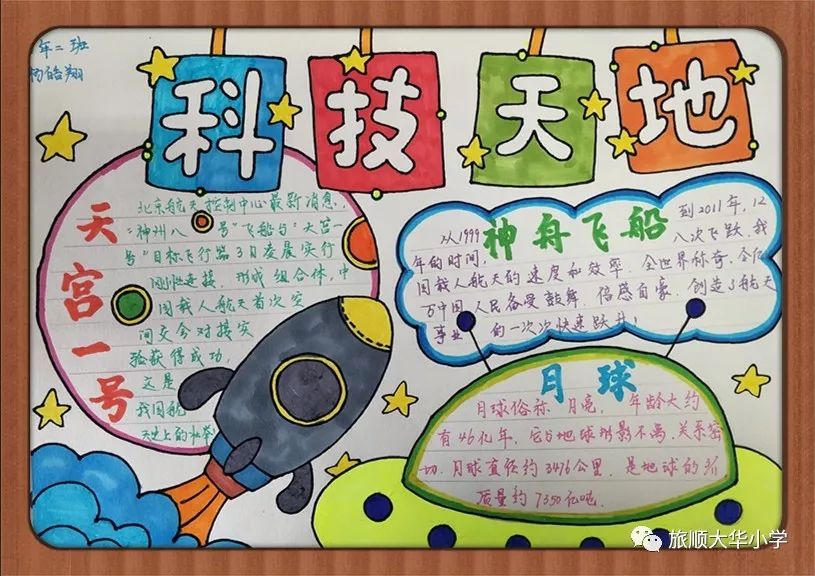 年二 班
杨皓翔
科技天地
天宫一号
北京航天控制中心最新消息,
"神州八号"飞船与"天宫一
号"目标飞行器3日凌晨实行
刚性连接,形成组合体,中
国载人航天首次空
间交会对接实
验获得成功,
这是
我国航
天史上的壮举!
神舟飞船
从1999 到2011年,12
年的时间, 八次飞跃,我
国载人航天的速度和效率,令世界称奇,令亿
万中国人民备受鼓舞,倍感自豪,创造了航天
事业 的一次次快速跃升!
月球
月球俗称月亮, 年龄大约
有46亿年,它与地球形影不离,关系密
切.月球直径约3476公里,是地球的
质量约7350亿吨.
旅顺大华小学